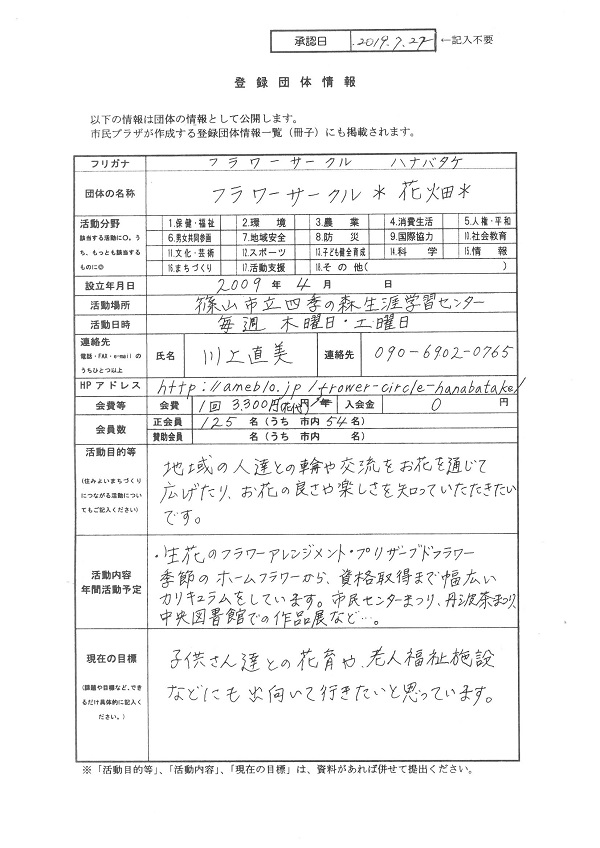 承認日 2019.7.27 ←記入不要
登録団体情報
以下の情報は団体の情報として公開します。
市民プラザが作成する登録団体情報一覧（冊子）にも掲載されます。
フリガナ フラワーサークル ハナバタケ
団体の名称 フラワーサークル＊花畑＊
活動分野
該当する活動に○。う
ち、もっとも該当する
ものに◎
1.保健・福祉 2.環境 3.農業 4.消費生活 5.人権・平和
6.男女共同参画 7.地域安全 8.防災 9.国際協力 10.社会教育
11.文化・芸術 12.スポーツ 13.子ども健全育成 14.科学 15.情報
16.まちづくり 17.活動支援 18.その他( )
設立年月日 2009年4月 日
活動場所 篠山市立四季の森生涯学習センター
活動日時 毎週 木曜日・土曜日
連絡先
電話・FAX・e-mail の
うちひとつ以上
氏名 川上直美 連絡先 090-6902-0765
HPアドレス http://ameblo.jp/frower-circle-hanabatake/
会費等 会費 1回 3,300円(花代) 円/年 入会金 0 円
会員数 正会員 125 名（うち 市内 54 名）
賛助会員 名（うち 市内 名）
活動目的等
(住みよいまちづくり
につながる活動につい
てもご記入ください)
地域の人達との輪や交流をお花を通じて
広げたり、お花の良さや楽しさを知っていただきたい
です。
活動内容
年間活動予定
・生花のフラワーアレンジメント・プリザーブドフラワー
季節のホームフラワーから、資格取得まで幅広い
カリキュラムをしています。市民センターまつり、丹波茶まつり、
中央図書館での作品展など…。
現在の目標
(課題や目標など、でき
るだけ具体的に記入く
ださい。)
子供さん達との花育や、老人福祉施設
などにも出向いて行きたいと思っています。
※「活動目的等」、「活動内容」、「現在の目標」は、資料があれば併せて提出ください。